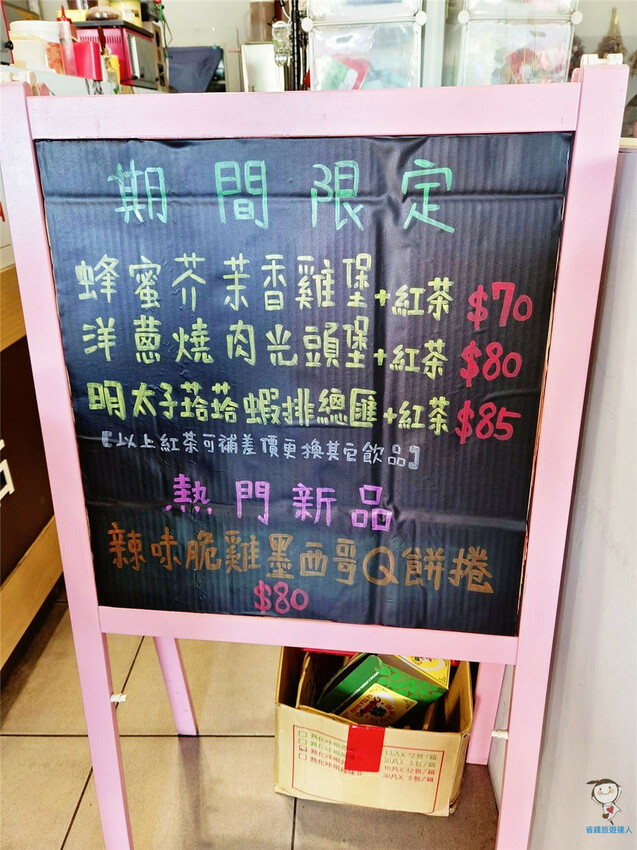 期間限定
蜂蜜芥茉香雞堡+紅茶 $70
洋蔥燒肉光頭堡+紅茶 $80
明太子塔塔蝦排總匯+紅茶 $85
【以上紅茶可補差價更換其它飲品】
熱門新品
辣味脆雞墨西哥Q餅捲
$80
省錢旅遊達人